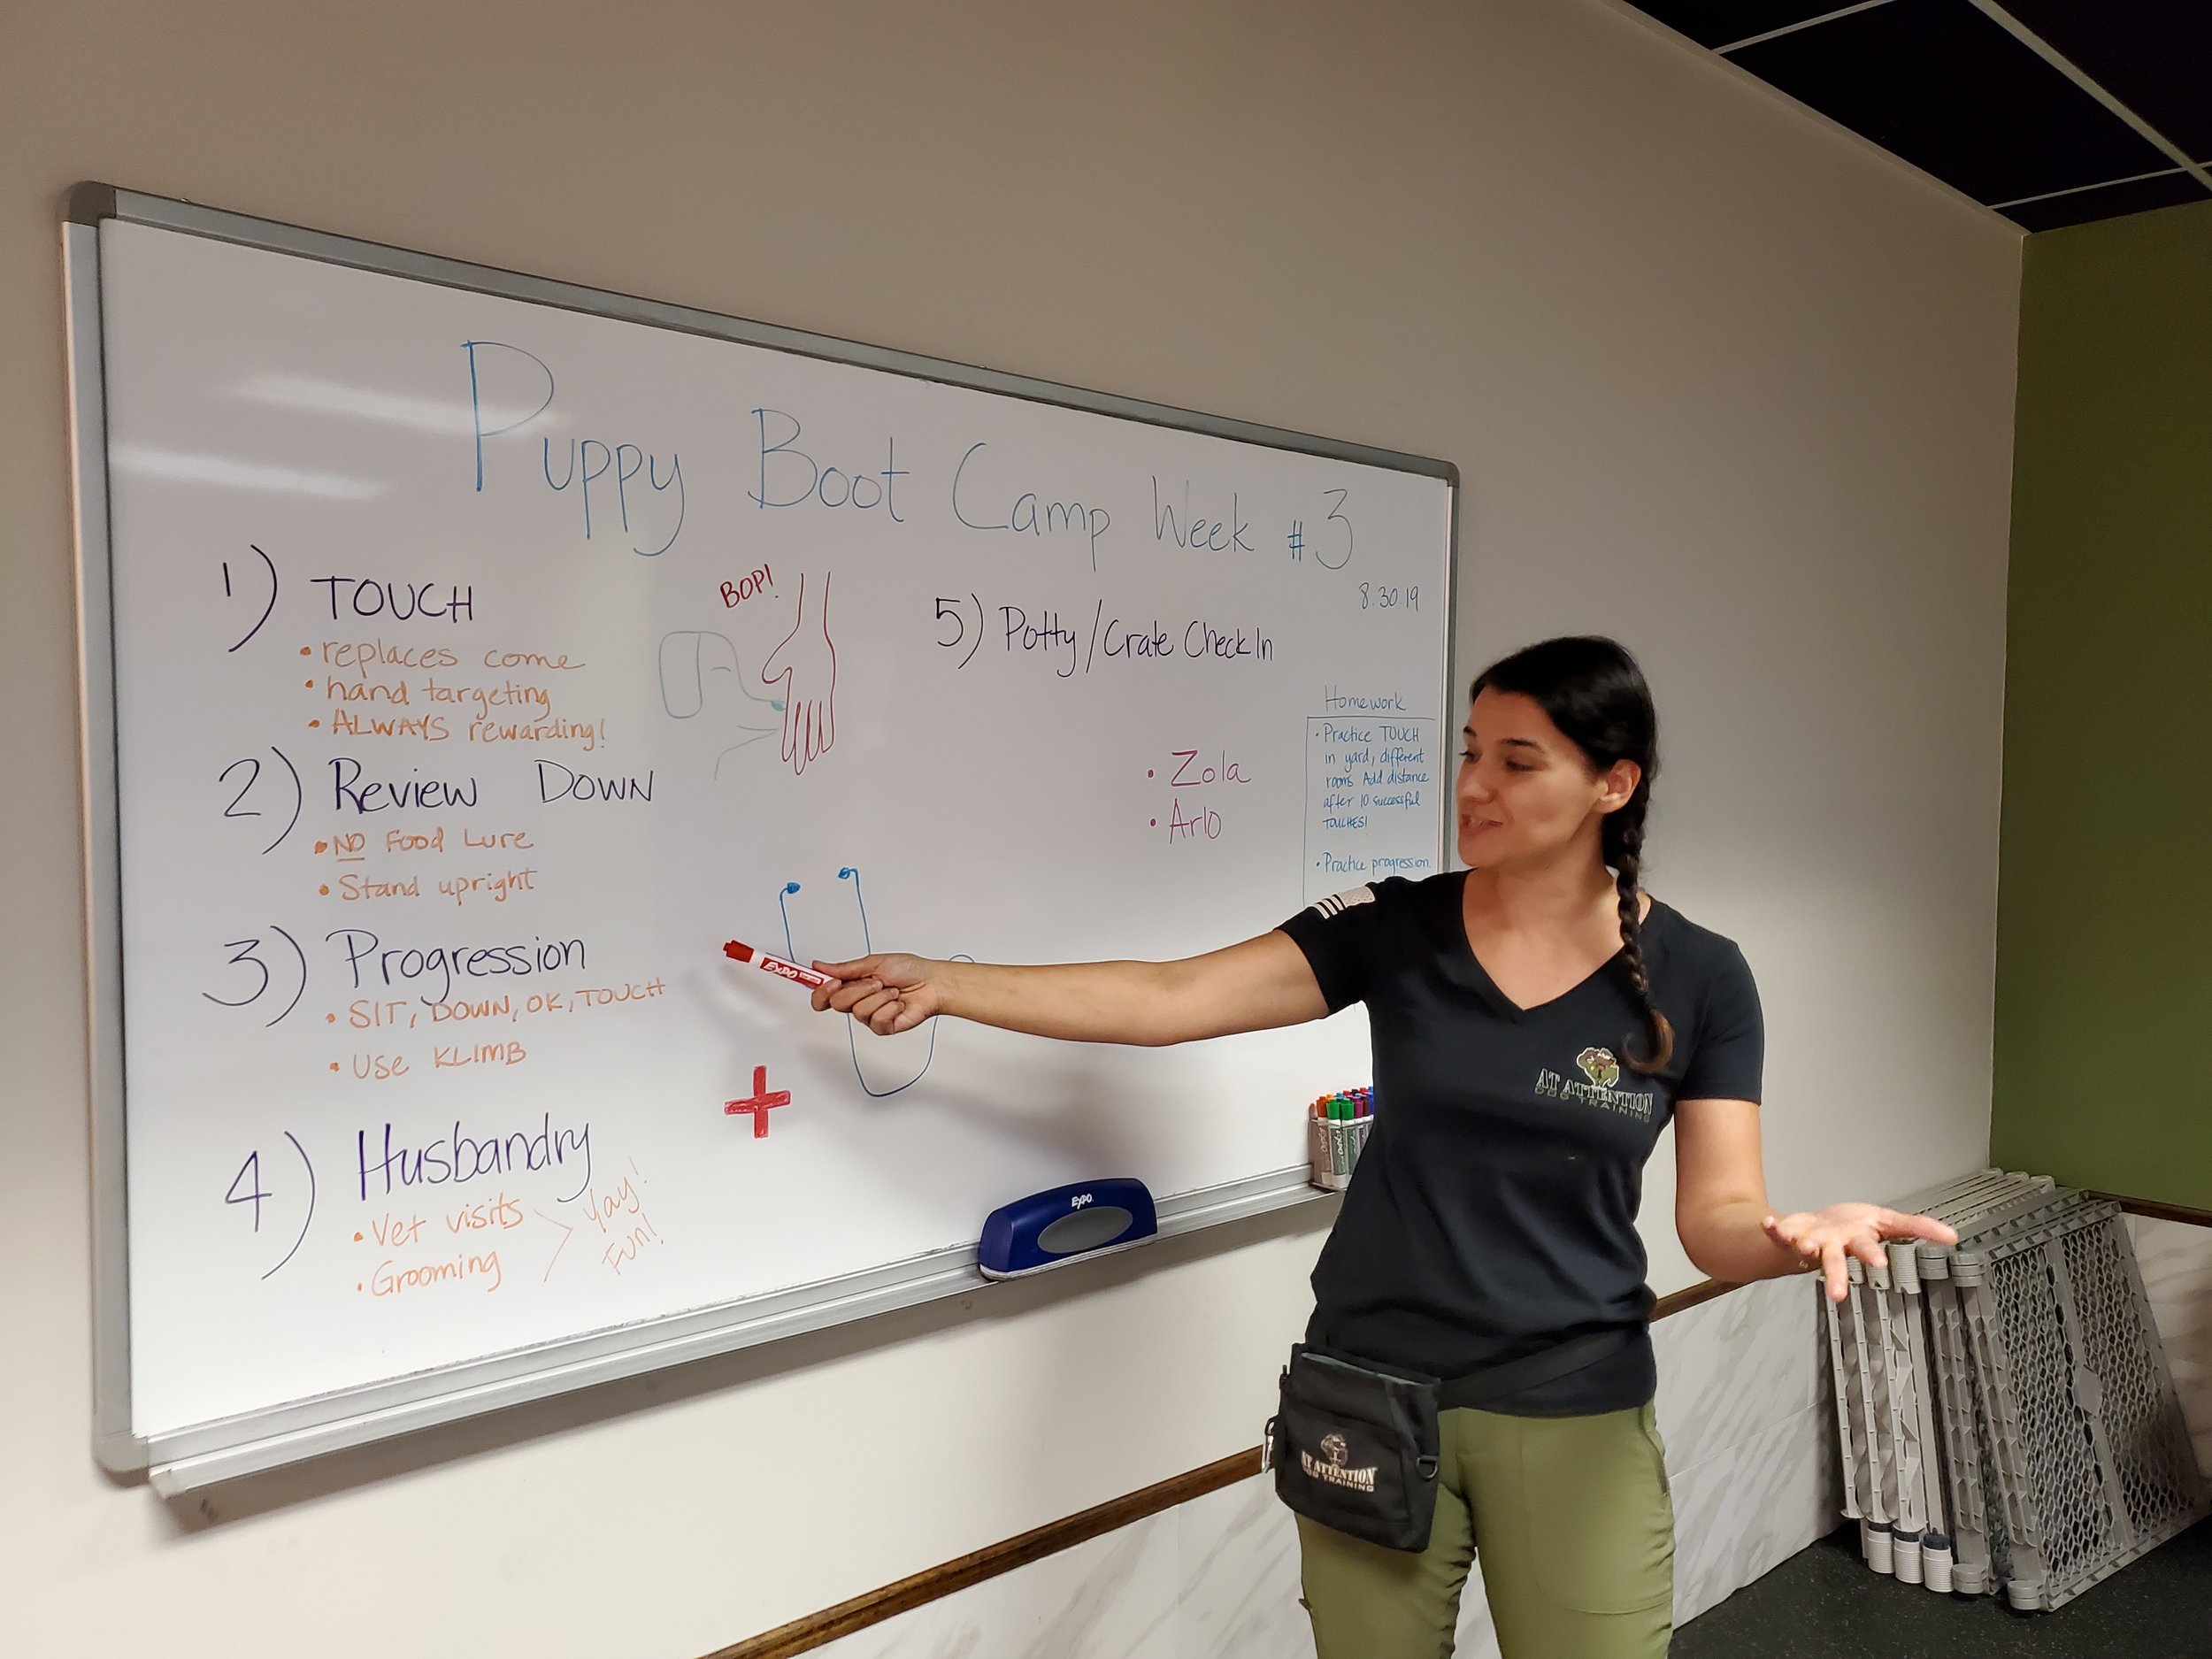 Puppy Boot Camp Week #3
8.30.19
1) TOUCH
• replaces come
• hand targeting
• ALWAYS rewarding!
BOP!
2) Review DOWN
• NO Food Lure
• Stand upright
3) Progression
• SIT, DOWN, OK, TOUCH
• Use KLIMB
4) Husbandry
• Vet visits
• Grooming
Yay!
Fun!
5) Potty/Crate Check In
• Zola
• Arlo
Homework
• Practice TOUCH
in yard, different
rooms. Add distance
after 10 successful
TOUCHES!
• Practice progression.
EXPO
EXPO
AT ATTENTION
DOG TRAINING
AT ATTENTION
DOG TRAINING